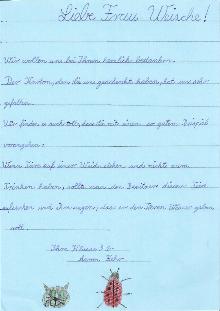 Liebe Frau Wüsche!
Wir wollen uns bei Ihnen herzlich bedanken.
Der Kindern, den Sie uns geschenkt haben, hat uns sehr
gefallen.
Wir finden es auch toll, dass Sie mit einem so guten Beispiel
vorangehen.
Wenn Tiere auf einer Weide stehen und nichts zum
Trinken haben, sollte man den Besitzern dieser Tiere
aufsuchen und ihnen sagen, dass er den Tieren Wasser geben
soll.
Ihre Klasse 3